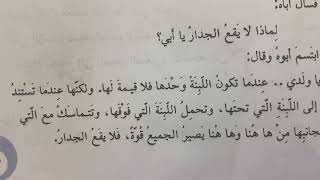 فسأل أباه:
لِماذا لا يَقَعُ الجدارُ يا أَبي؟
ابتسَمَ أبوهُ وقال:
يا ولَدي .. عِندَما تكونُ اللَّبِنَةُ وَحْدَها فلا قيمَةَ لَها. ولكنَّها عِندَما تَسْتنِدُ
إلى اللَّبِنَةِ الَّتي تحتَها، وتحمِلُ اللَّبنَةَ الَّتي فَوْقَها، وتتماسَكُ معَ الَّتي
بجانبِها مِنْ ها هُنا وها هُنا يَصيرُ الجميعُ قُوَّةً، فلا يقَعُ الجدارُ.